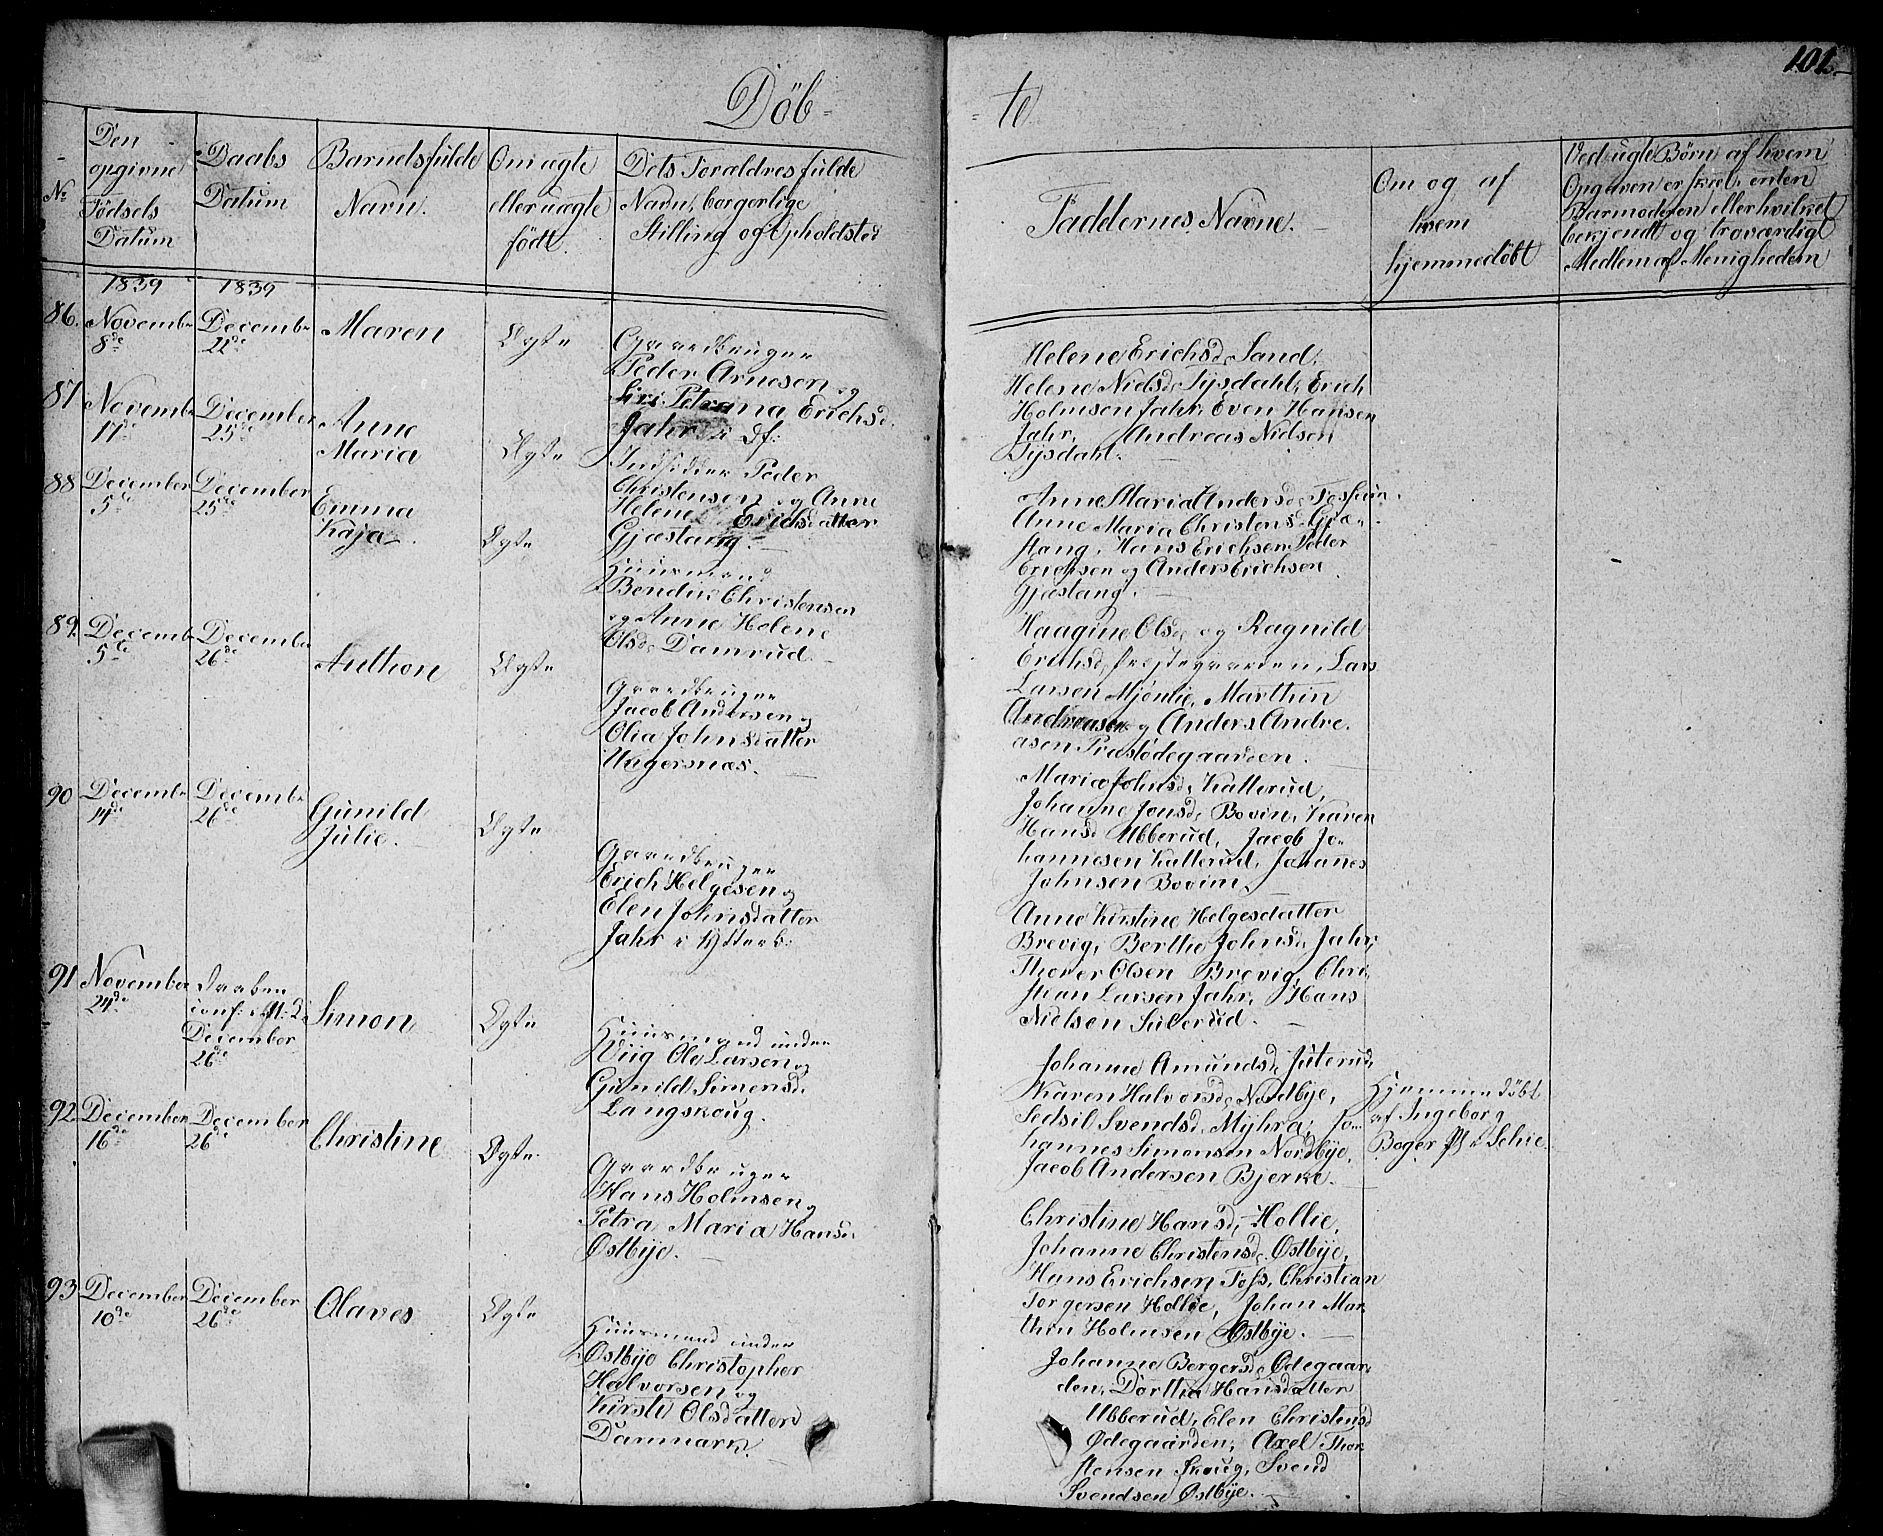 Döb-
-te
101.
No
Den opgivne Födsels Datum
Daabs Datum
Barnets fulde Navn.
Om ægte eller uægte født.
Dets Forældres fulde Navn, borgerlige Stilling og Opholdsted
Faddernes Navne.
Om og af hvem hjemmedöbt
Ved ugte Börn af hvem Opgaven er skeet, enten Barmoderen eller hvilket bekjendt og troværdigt Medlem af Menigheden
1839
1839
86.
Novembr 8de
Decembr 22de
Maren
Ægte
Gaardbruger
Peder Arnesen og
Siri Petrina Erichsd.
Jahr i Df:
Helene Erichsd. Sand,
Helene Nielsd. Tysdahl, Erich
Holmsen Jahr, Even Hansen
Jahr, Andreas Nielsen
Tysdahl.
87
Novembr 17de
December 25de
Anne
Maria
Ægte
Indsidder Peder
Christensen og Anne
Helene Erichsdatter
Gjæstang.
Anne Maria Andersd.
Anne Maria Christensd. Gjæ-
stang, Hans Erichsen, Peder
Erichsen og Anders Erichsen
Gjæstang.
88
December 5te
December 25de
Emma
Kaja
Ægte
Huusmand
Bendix Christensen
og Anne Helene
Olsd. Damrud.
Haagine Olsd. og Ragnild
Erichsd. Prestegaarden, Lars
Larsen Mjönlie, Marthin
Andreasen og Anders Andre-
asen Præstödegaarden.
89.
Decembr 5te
December 26de
Anthon
Ægte
Gaardbruger
Jacob Andersen og
Olia Johnsdatter
Ungersnæs.
Maria Johnsd. Katterud,
Johanne Jonsd. Bovin, Karen
Hansd. Ubberud, Jacob Jo-
hannesen Katterud, Johanes
Johnsen Bovim.
90
Decembr 14de
Decembr 26de
Gunild
Julie.
Ægte
Gaardbruger
Erich Helgesen og
Elen Johnsdatter
Jahr i Ytterk:
Anne Kirstine Helgesdatter
Brevig, Berthe Johnsd. Jahr,
Thorer Olsen Brevig, Chri-
stian Larsen Jahr, Hans
Nielsen Sulerud.
91
November 24de
Daaben
conf:
December
26de
Simon
Ægte
Huusmand under
Wiig Ole Larsen og
Gunild Simensd.
Langskoug.
Johanne Amundsd. Juterud,
Karen Halvorsd. Nordbye,
Sedsil Svendsd. Myhra, Jo-
hannes Simonsen Nordbye,
Jacob Andersen Bjerke.
Hjemmedöbt
af Ingeborg
Boger Pl: Schie.
92.
December 16de
December 26de
Christine
Ægte.
Gaardbruger
Hans Holmsen og
Petra Maria Hansd.
Østbye.
Christine Hansd. Hollie,
Johanne Christensd. Østbye,
Hans Erichsen Foss, Christian
Torgersen Hollie, Johan Mar-
thin Holmsen Østbye.
93
December 10de
December 26de
Olaves
Ægte
Huusmand under
Østbye Christopher
Halvorsen og
Kirsti Olsdatter
Danmark.
Johanne Bergersd. Ødegaar-
den, Dorthea Hansdatter
Ubberud, Elen Christensd
Ødegaarden, Axel Thor-
stensen Skoug, Svend
Svendsen Østbye.